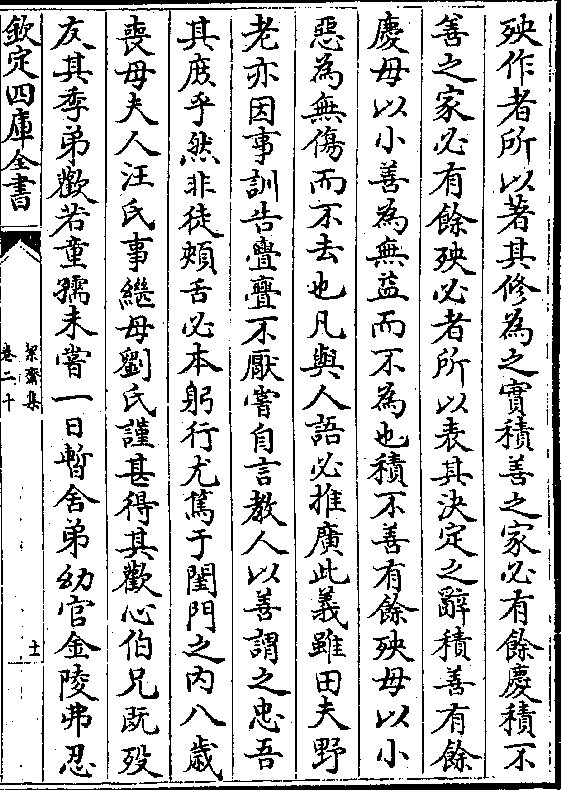 殃作者所以著其修為之實積善之家必有餘慶積不
善之家必有餘殃必者所以表其決定之辭積善有餘
慶毋以小善為無益而不為也積不善有餘殃毋以小
惡為無傷而不去也凡與人語必推廣此義雖田夫野
老亦因事訓告亹亹不厭嘗自言教人以善謂之忠吾
其庶乎然非徒頰舌必本躬行尤篤于閨門之内八歳
喪母夫人汪氏事繼母劉氏謹甚得其歡心伯兄既殁
友其季弟歡若童孺未嘗一日暫舍弟幼官金陵弗忍
欽定四庫全書
絜齋集
卷二十
士